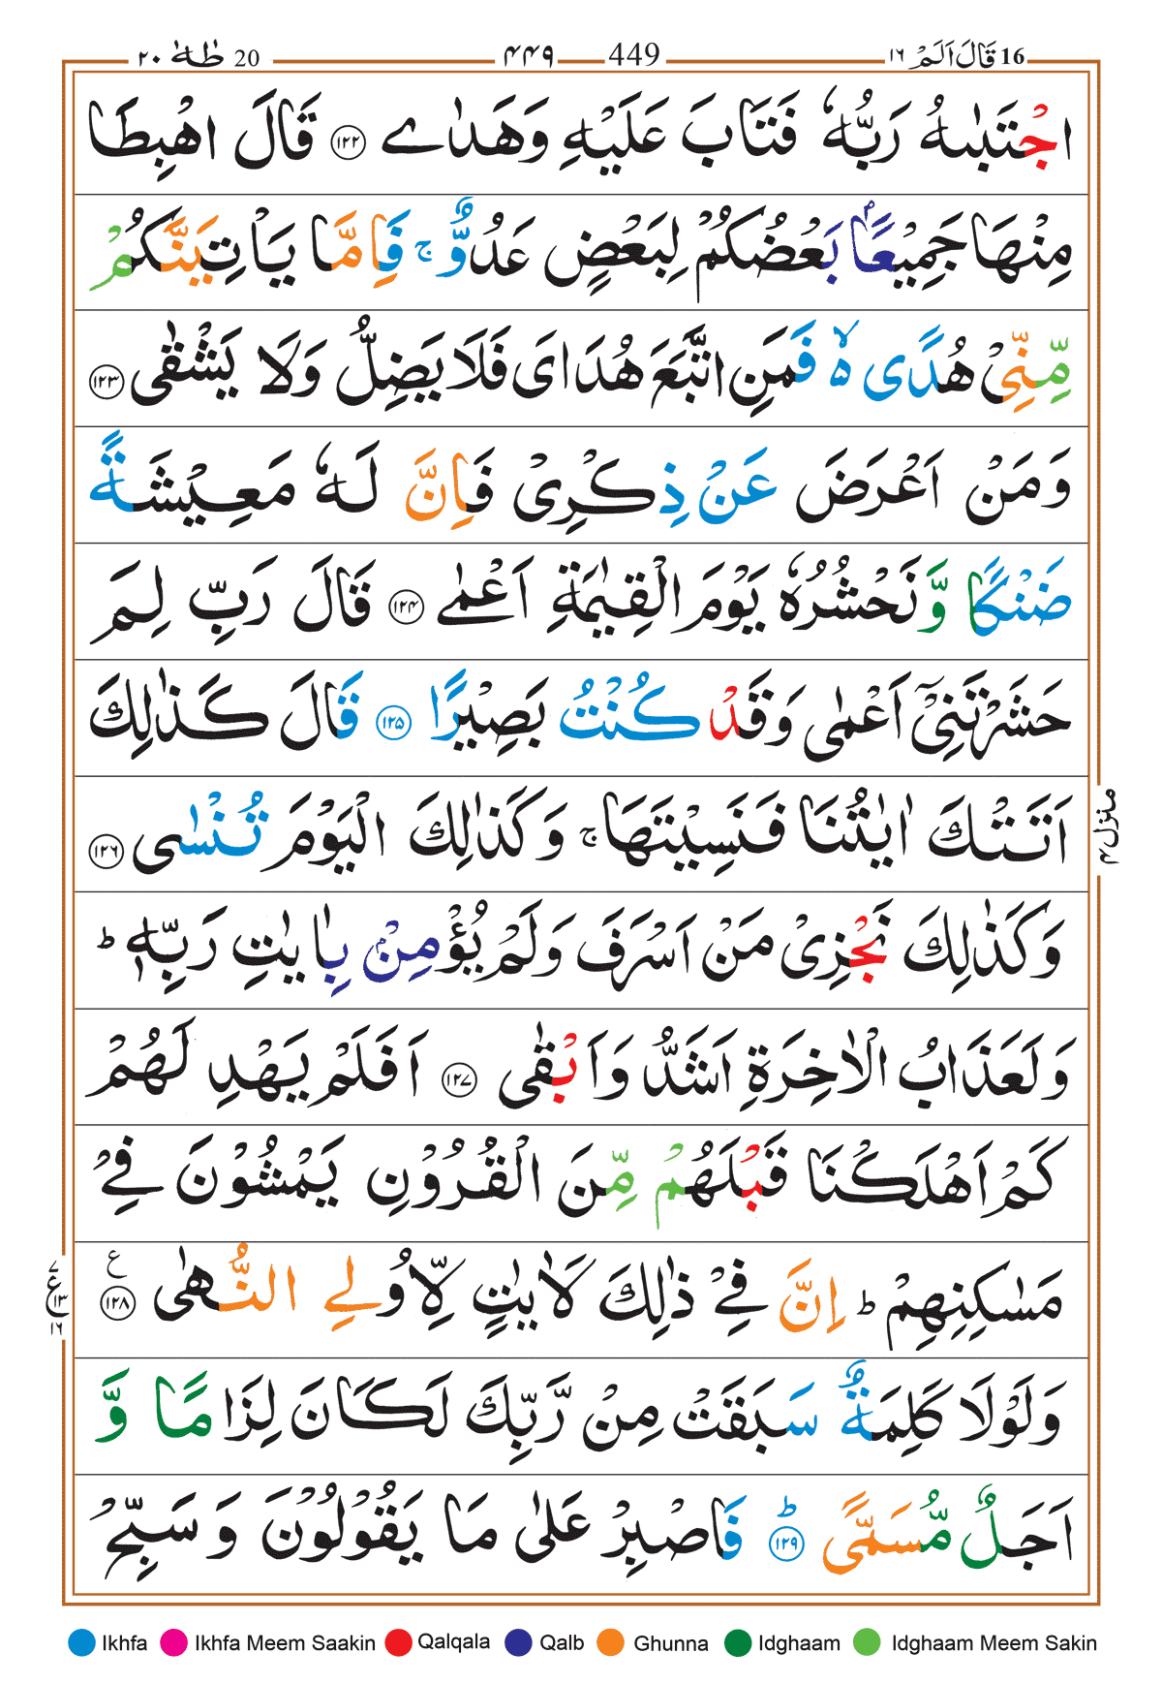 20 طٰهٰ ٢٠
449 ٤٤٩
16 قَالَ اَلَمْ ١٦
اجْتَبٰىهُ رَبُّهٗ فَتَابَ عَلَيْهِ وَهَدٰى ۝١٢٢ قَالَ اهْبِطَا
مِنْهَا جَمِيْعًاۢ بَعْضُكُمْ لِبَعْضٍ عَدُوٌّ ۚ فَاِمَّا يَاْتِيَنَّكُمْ
مِّنِّىْ هُدًى ۙ۬ فَمَنِ اتَّبَعَ هُدَاىَ فَلَا يَضِلُّ وَلَا يَشْقٰى ۝١٢٣
وَمَنْ اَعْرَضَ عَنْ ذِكْرِىْ فَاِنَّ لَهٗ مَعِيْشَةً
ضَنْكًا وَّنَحْشُرُهٗ يَوْمَ الْقِيٰمَةِ اَعْمٰى ۝١٢٤ قَالَ رَبِّ لِمَ
حَشَرْتَنِىْٓ اَعْمٰى وَقَدْ كُنْتُ بَصِيْرًا ۝١٢٥ قَالَ كَذٰلِكَ
اَتَتْكَ اٰيٰتُنَا فَنَسِيْتَهَا ۚ وَكَذٰلِكَ الْيَوْمَ تُنْسٰى ۝١٢٦
وَكَذٰلِكَ نَجْزِىْ مَنْ اَسْرَفَ وَلَمْ يُؤْمِنْۢ بِاٰيٰتِ رَبِّهٖ ؕ
وَلَعَذَابُ الْاٰخِرَةِ اَشَدُّ وَاَبْقٰى ۝١٢٧ اَفَلَمْ يَهْدِ لَهُمْ
كَمْ اَهْلَكْنَا قَبْلَهُمْ مِّنَ الْقُرُوْنِ يَمْشُوْنَ فِىْ
مَسٰكِنِهِمْ ؕ اِنَّ فِىْ ذٰلِكَ لَاٰيٰتٍ لِّاُولِى النُّهٰى ۝١٢٨ ع
وَلَوْلَا كَلِمَةٌ سَبَقَتْ مِنْ رَّبِّكَ لَكَانَ لِزَامًا وَّ
اَجَلٌ مُّسَمًّى ۝١٢٩ ؕ فَاصْبِرْ عَلٰى مَا يَقُوْلُوْنَ وَسَبِّحْ
منزل ٤
٧ ع ١٣ ١٦
Ikhfa Ikhfa Meem Saakin Qalqala Qalb Ghunna Idghaam Idghaam Meem Sakin